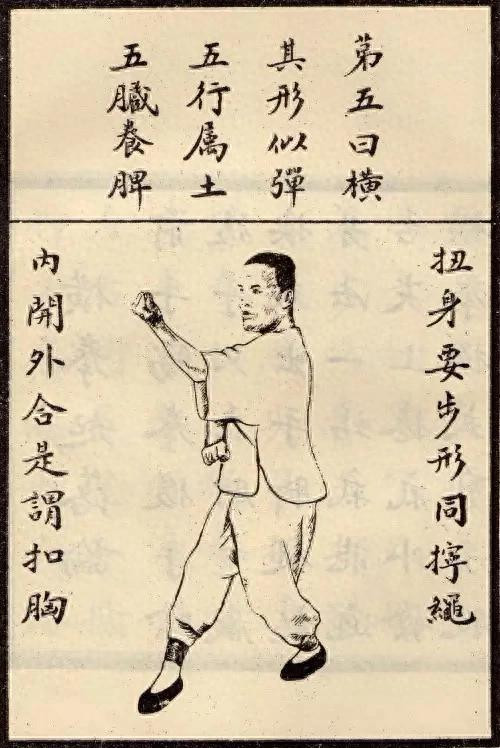 第五曰横
其形似彈
五行屬土
五臟養脾
扭身要步形同擰繩
內開外合是謂扣胸